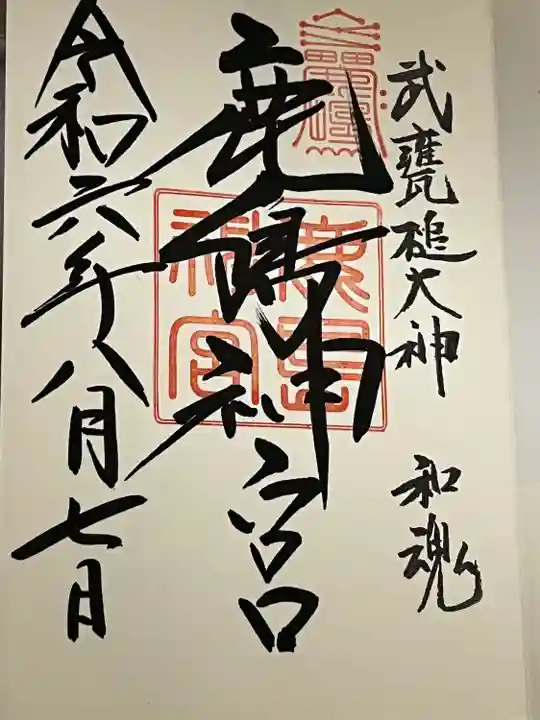 武甕槌大神　和魂
鹿島神宮
令和六年八月七日
鹿島
神宮